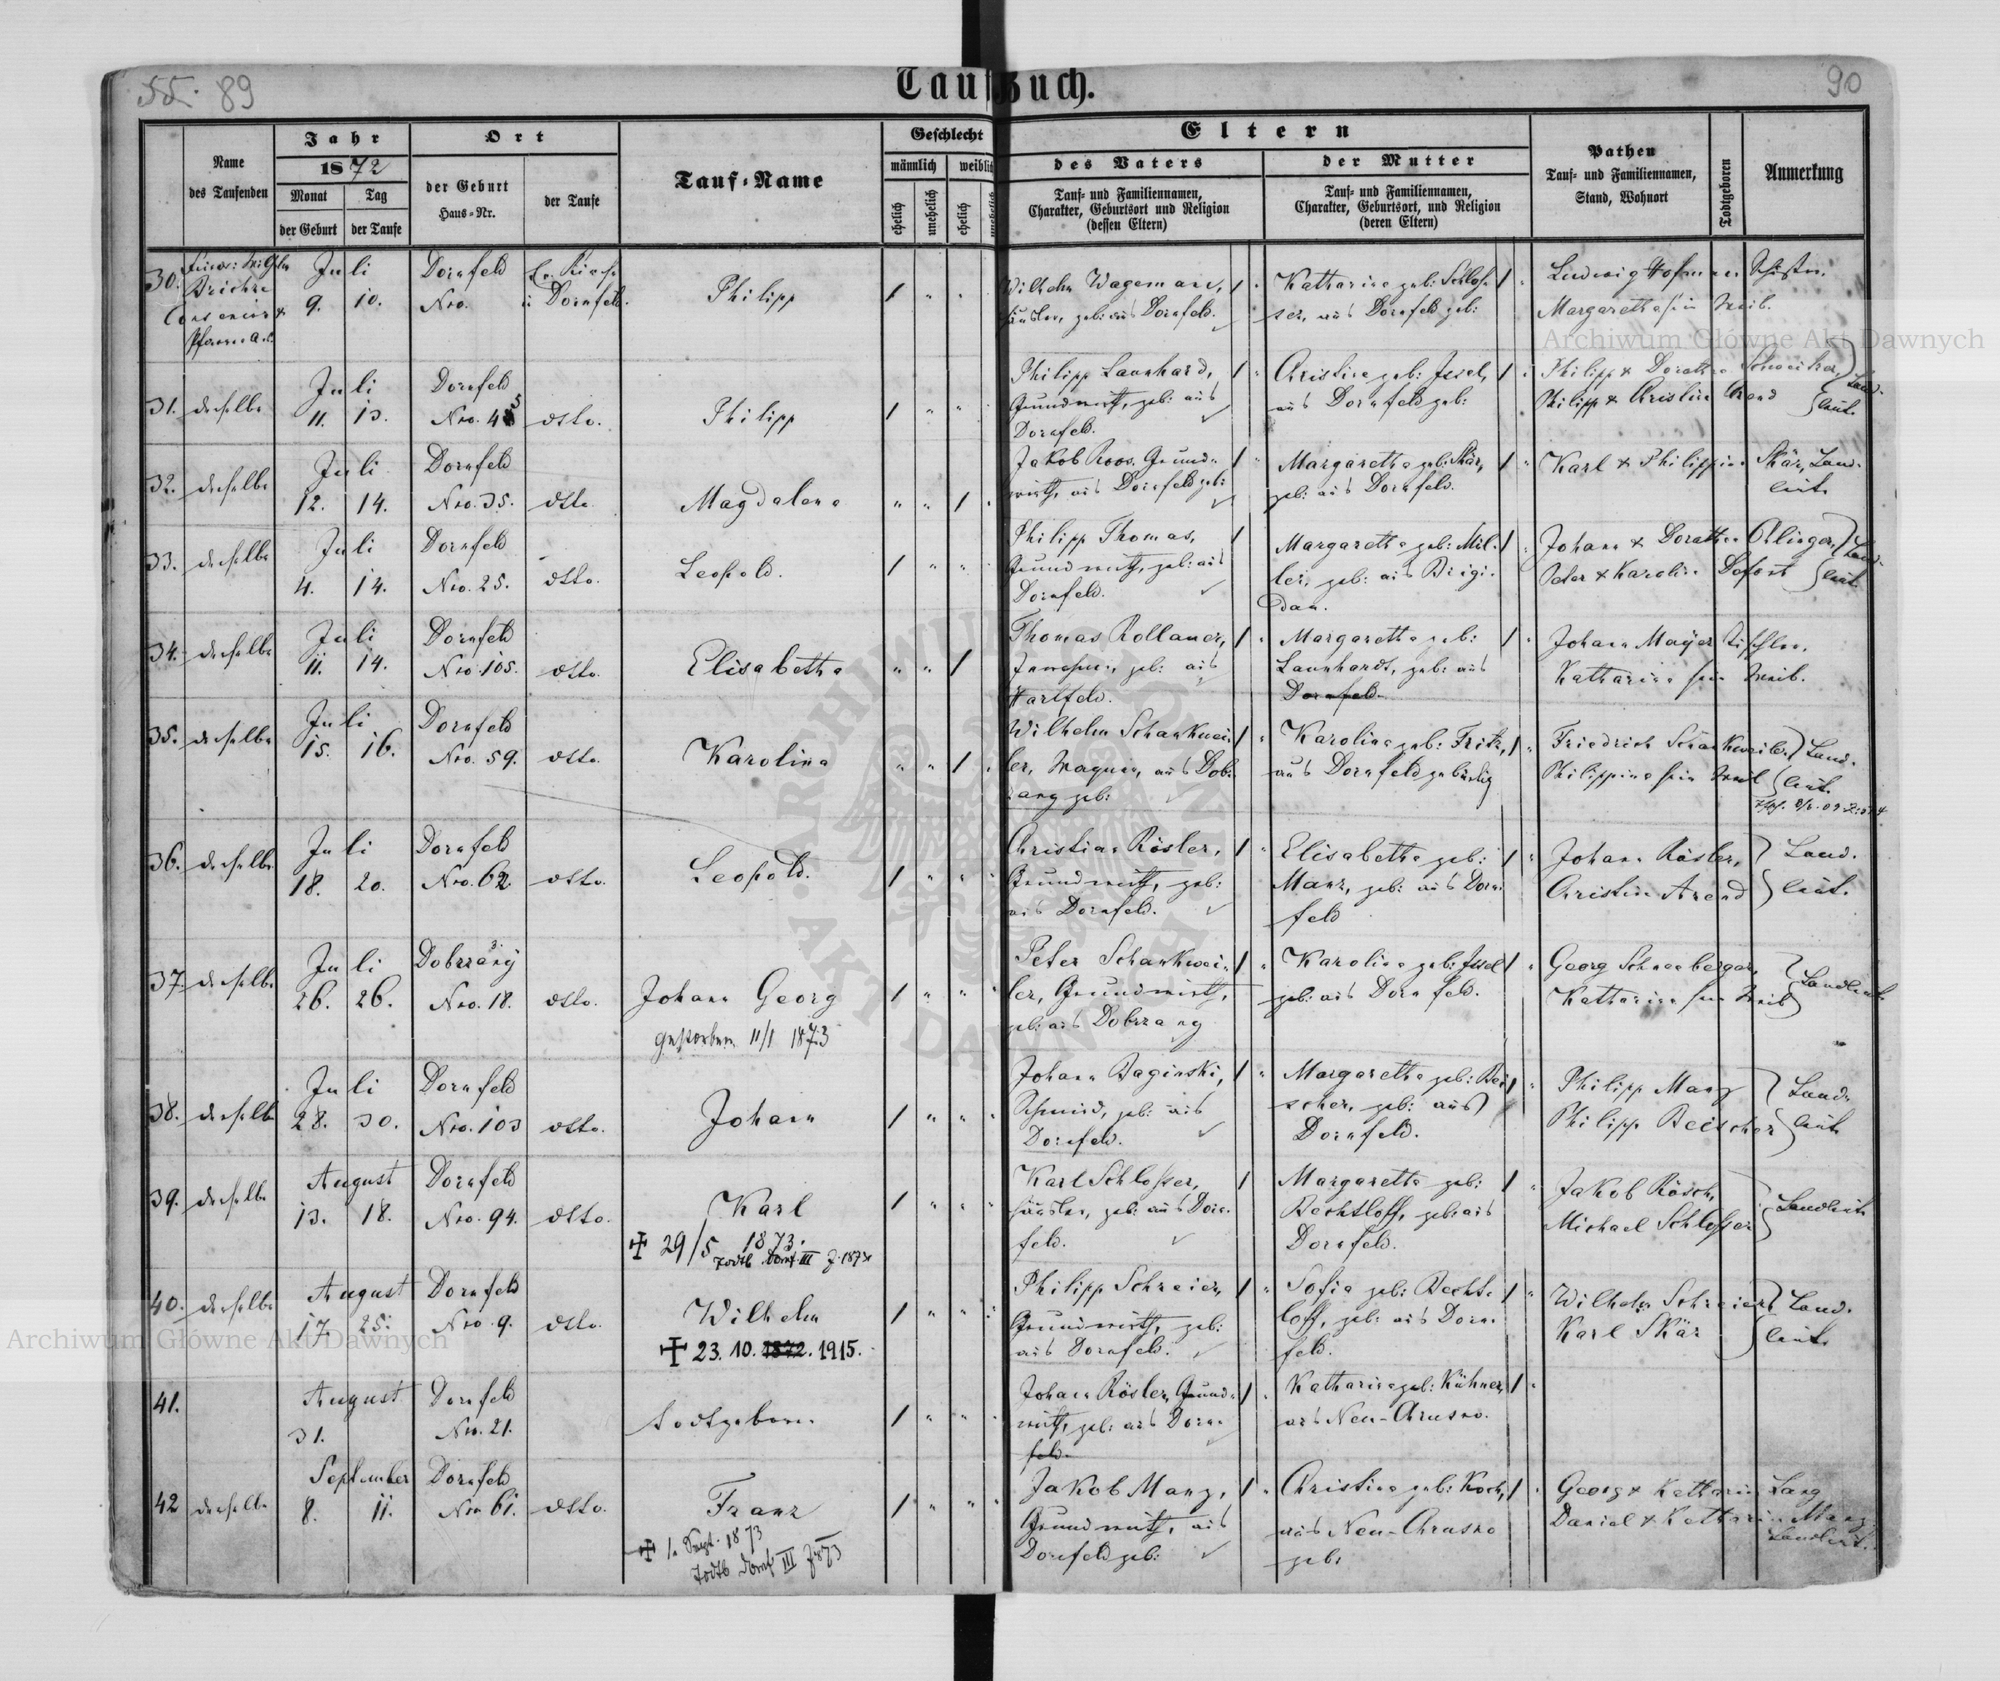 55. 89
90
Taufbuch.
Name
des Taufenden
Jahr
1872
Monat
der Geburt
Tag
der Taufe
Ort
der Geburt
Haus=Nr.
der Taufe
Tauf=Name
Geschlecht
männlich
weiblich
ehelich
unehelich
ehelich
unehelich
Eltern
des Vaters
Tauf= und Familiennamen,
Charakter, Geburtsort und Religion
(dessen Eltern)
der Mutter
Tauf= und Familiennamen,
Charakter, Geburtsort, und Religion
(deren Eltern)
Pathen
Tauf= und Familiennamen,
Stand, Wohnort
Todtgeboren
Anmerkung
30.
Juli
9. 10.
Dornfeld
Nro.
Ev. Kirche
in Dornfeld.
Philipp
Wilhelm Wagemann,
Häusler, geb: aus Dornfeld.
Katharina geb: Schlos=
ser, aus Dornfeld geb:
Ludwig Hofmann
Margaretha sein Weib.
31. derselbe
Juli
11. 13.
Dornfeld
Nro. 45
dtto.
Philipp
Philipp Launhard,
Grundwirth, geb: aus
Dornfeld.
Christina geb: Jssel,
aus Dornfeld geb:
Philipp & Dorothea Schweitzer,
Philipp & Christine Arend
Land=
leute
32. derselbe
Juli
12. 14.
Dornfeld
Nro. 35.
dtto
Magdalena
Jakob Roos, Grund=
wirth, aus Dornfeld geb:
Margaretha geb: Skär,
geb: aus Dornfeld.
Karl & Philippine Skär, Land=
leute
33. derselbe
Juli
4. 14.
Dornfeld
Nro. 25.
dtto.
Leopold.
Philipp Thomas,
Grundwirth, geb: aus
Dornfeld.
Margaretha geb: Mül=
ler, geb: aus Brigi=
dau.
Johann & Dorothea Oblinger,
Peter & Karolin Dofort
Land=
leute
34. derselbe
Juli
11. 14.
Dornfeld
Nro. 105.
dtto.
Elisabetha
Thomas Rollauer,
geb: aus
Hartfeld.
Margaretha geb:
Launhardt, geb: aus
Dornfeld.
Johann Mayer Tischler,
Katharina sein Weib.
35. derselbe
Juli
15. 16.
Dornfeld
Nro. 59.
dtto.
Karolina
Wilhelm Schankwei=
ler, Wagner, aus Dob=
zang geb:
Karolina geb: Fritz,
aus Dornfeld gebürtig
Friedrich Schankweiler
Philippine sein Weib
Land=
leute.
36. derselbe
Juli
18. 20.
Dornfeld
Nro. 62
dtto.
Leopold.
Christian Rösler,
Grundwirth, geb:
aus Dornfeld.
Elisabetha geb:
Manz, geb: aus Dorn=
feld
Johann Rösler,
Christine Arend
Land=
leute.
37. derselbe
Juli
26. 26.
Dobrzany
Nro. 18.
dtto.
Johann Georg
gestorben 11/1 1873
Peter Schankwei=
ler, Grundwirth,
geb: aus Dobrzang
Karolina geb: Jssel
geb: aus Dornfeld.
Georg Schneeberger,
Katharina sein Weib
Landleute
38. derselbe
Juli
28. 30.
Dornfeld
Nro. 103
dtto.
Johann
Johann Baginski,
Schmied, geb: aus
Dornfeld.
Margaretha geb: Bei=
scher, geb: aus
Dornfeld.
Philipp Manz
Philipp Beischer
Land=
leute
39. derselbe
August
13. 18.
Dornfeld
Nro. 94.
dtto.
Karl
✠ 29/5 1873.
Todtb Dornf III
Karl Schlosser,
Häusler, geb: aus Dorn=
feld.
Margaretha geb:
Bechtloff, geb: aus
Dornfeld.
Jakob Rösch,
Michael Schlosser
Landleute
40. derselbe
August
17. 25.
Dornfeld
Nro. 9.
dtto.
Wilhelm
✠ 23. 10. 1872. 1915.
Philipp Schreier,
Grundwirth, geb:
aus Dornfeld.
Sofia geb: Becht=
loff, geb: aus Dorn=
feld.
Wilhelm Schreier
Karl Skär
Land=
leute.
41.
August
31.
Dornfeld
Nro. 21.
todtgeboren.
Johann Rösler, Grund=
wirth, geb: aus Dorn=
feld.
Katharina geb: Kühner,
aus Neu-Chrusno.
42 derselbe
September
8. 11.
Dornfeld
Nro 61.
dtto.
Franz
✠ 1. Sept. 1873
Todtb Dornf III
Jakob Manz,
Grundwirth, aus
Dornfeld geb:
Christina geb: Koch,
aus Neu-Chrusno
geb:
Georg & Katharin Lang
Daniel & Katharin Manz
Landleute.
Archiwum Główne Akt Dawnych
Archiwum Główne Akt Dawnych